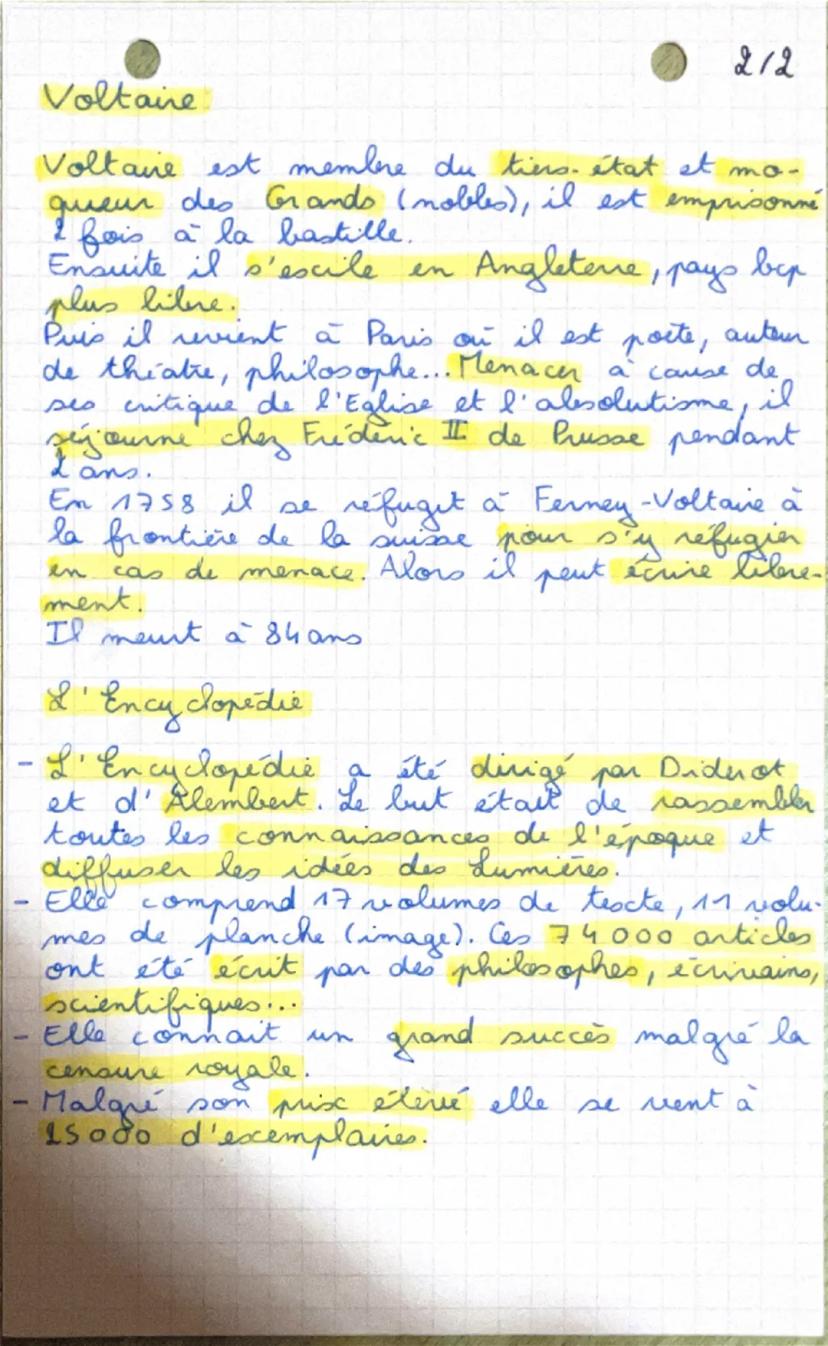 2/2
Voltaire
Voltaire est membre du tiers-état et mo-
queur des Grands (nobles), il est emprisonné
2 fois à la bastille.
Ensuite il s'exile en Angleterre, pays bcp
plus libre.
Puis il revient à Paris où il est poète, auteur
de théatre, philosophe... Menacer à cause de
ses critique de l'Eglise et l'absolutisme, il
séjourne chez Fréderic II de Prusse pendant
2 ans.
En 1758 il se réfugit à Ferney-Voltaire à
la frontière de la suisse pour s'y réfugier
en cas de menace. Alors il peut écrire libre-
ment.
Il meurt à 84 ans
L'Encyclopédie
- L'Encyclopédie a été dirigé par Diderot
et d'Alembert. Le but était de rassembler
toutes les connaissances de l'époque et
diffuser les idées des Lumières.
- Elle comprend 17 volumes de texte, 11 volu-
mes de planche (image). Ces 74 000 articles
ont été écrit par des philosophes, écrivains,
scientifiques...
- Elle connait un grand succès malgré la
censure royale.
- Malgré son prix élevé elle se vent à
25 000 d'exemplaires.